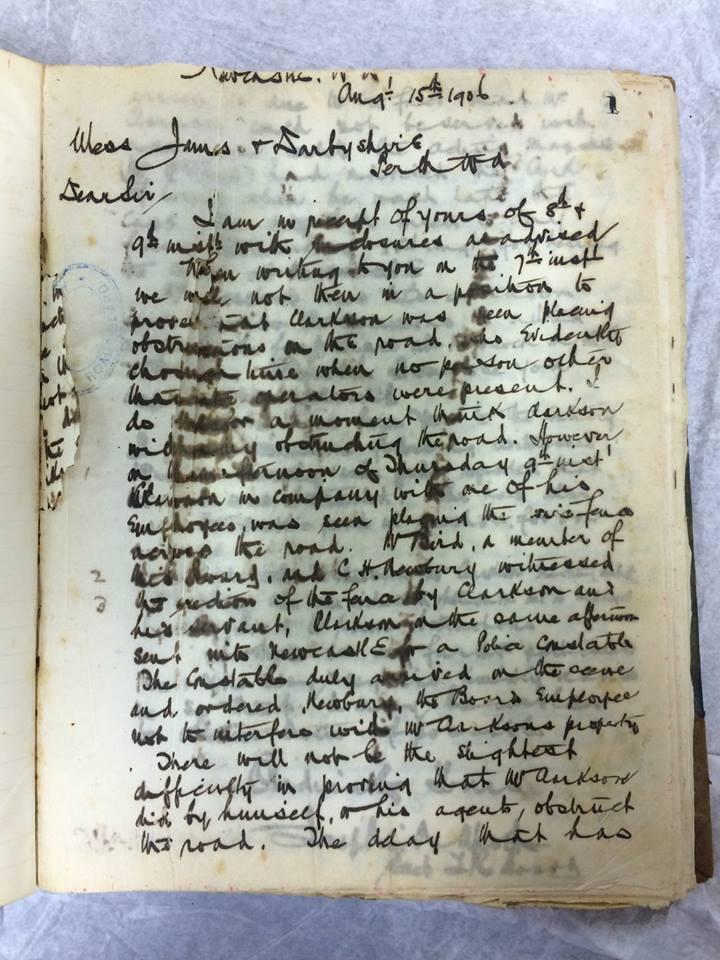 Newcastle. W A
Augt 15th 1906
1
Mess James & Darbyshire
Perth WA
Dear Sir/
I am in receipt of yours of 8th &
9th inst with enclosures as advised
When writing to you on the 7th inst
we were not then in a position to
prove that Clarkson was seen placing
obstructions on the road. who Evidently
time when no person other
than operators were present. I
do for a moment think Clarkson
obstructing the road. However
on the afternoon of Thursday 9th inst
Clarkson in company with one of his
Employees, was seen placing the wire fence
across the road. Mr Bird, a member of
2
this Board, and C. H. Newbury witnessed
3
the erection of the fence by Clarkson and
his servant, Clarkson on the same afternoon
sent into Newcastle for a Police Constable
The Constable duly arrived on the scene
and ordered Newbury, the Board Employee
not to interfere with Mr Clarksons property
There will not be the slightest
difficulty in proving that Mr Clarkson
did by himself, or his agent, obstruct
the road. The delay that has